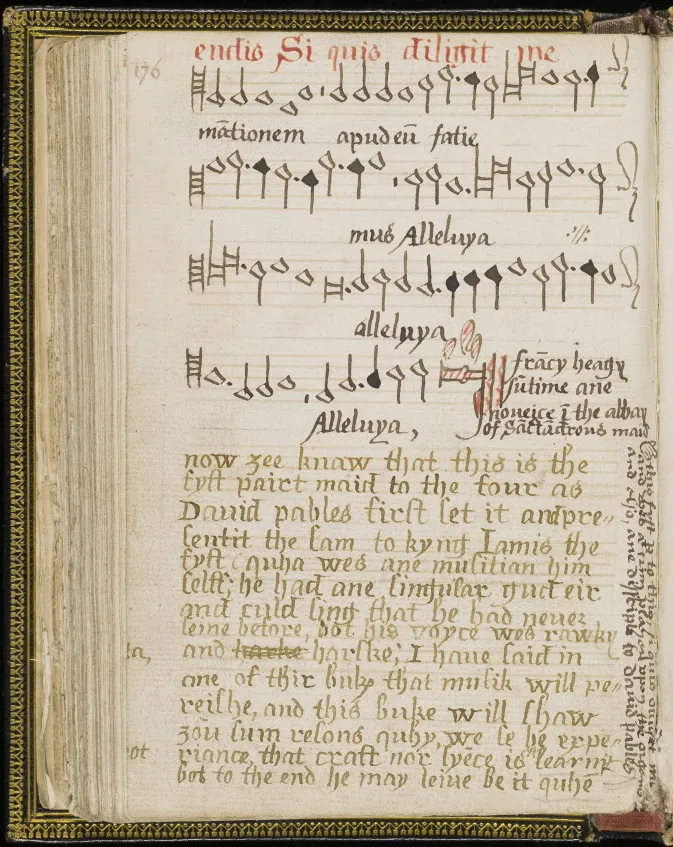 endis Si quis diligit me
176
mātionem apud eū facie
mus Alleluya
alleluya
frācy heagy
sūtime ane
noueice ī the abbay
of Sāctādrous maid
Alleluya,
now зee knaw that this is the
fyft pairt maid to the four as
Dauid pables first set it and pre„
sentit the sam to kyng Iamis the
fyft quha wes ane musitian him
self; he had ane singular gud eir
and culd sing that he had neuer
seine before, bot his voyce wes rawky
and harske harske; I haue said in
ane of thir buks that musik will pe„
reishe, and this buke will shaw
зou sum resons quhy, we se be expe„
riance, that craft nor syēce is learnit
bot to the end he may leiue be it quhē
ta,
ot